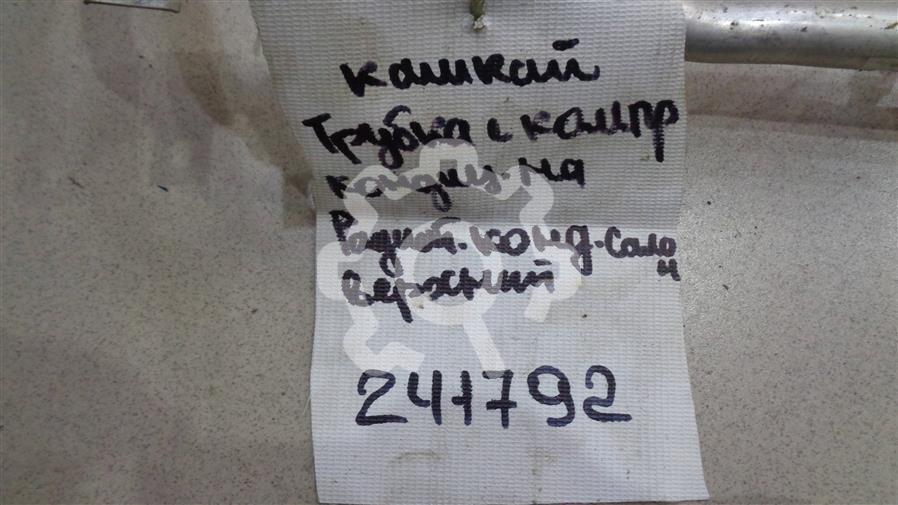 кашкай
Трубка с кампр
кондиц-на
Радиат.конд.сало
н
верхний
241792